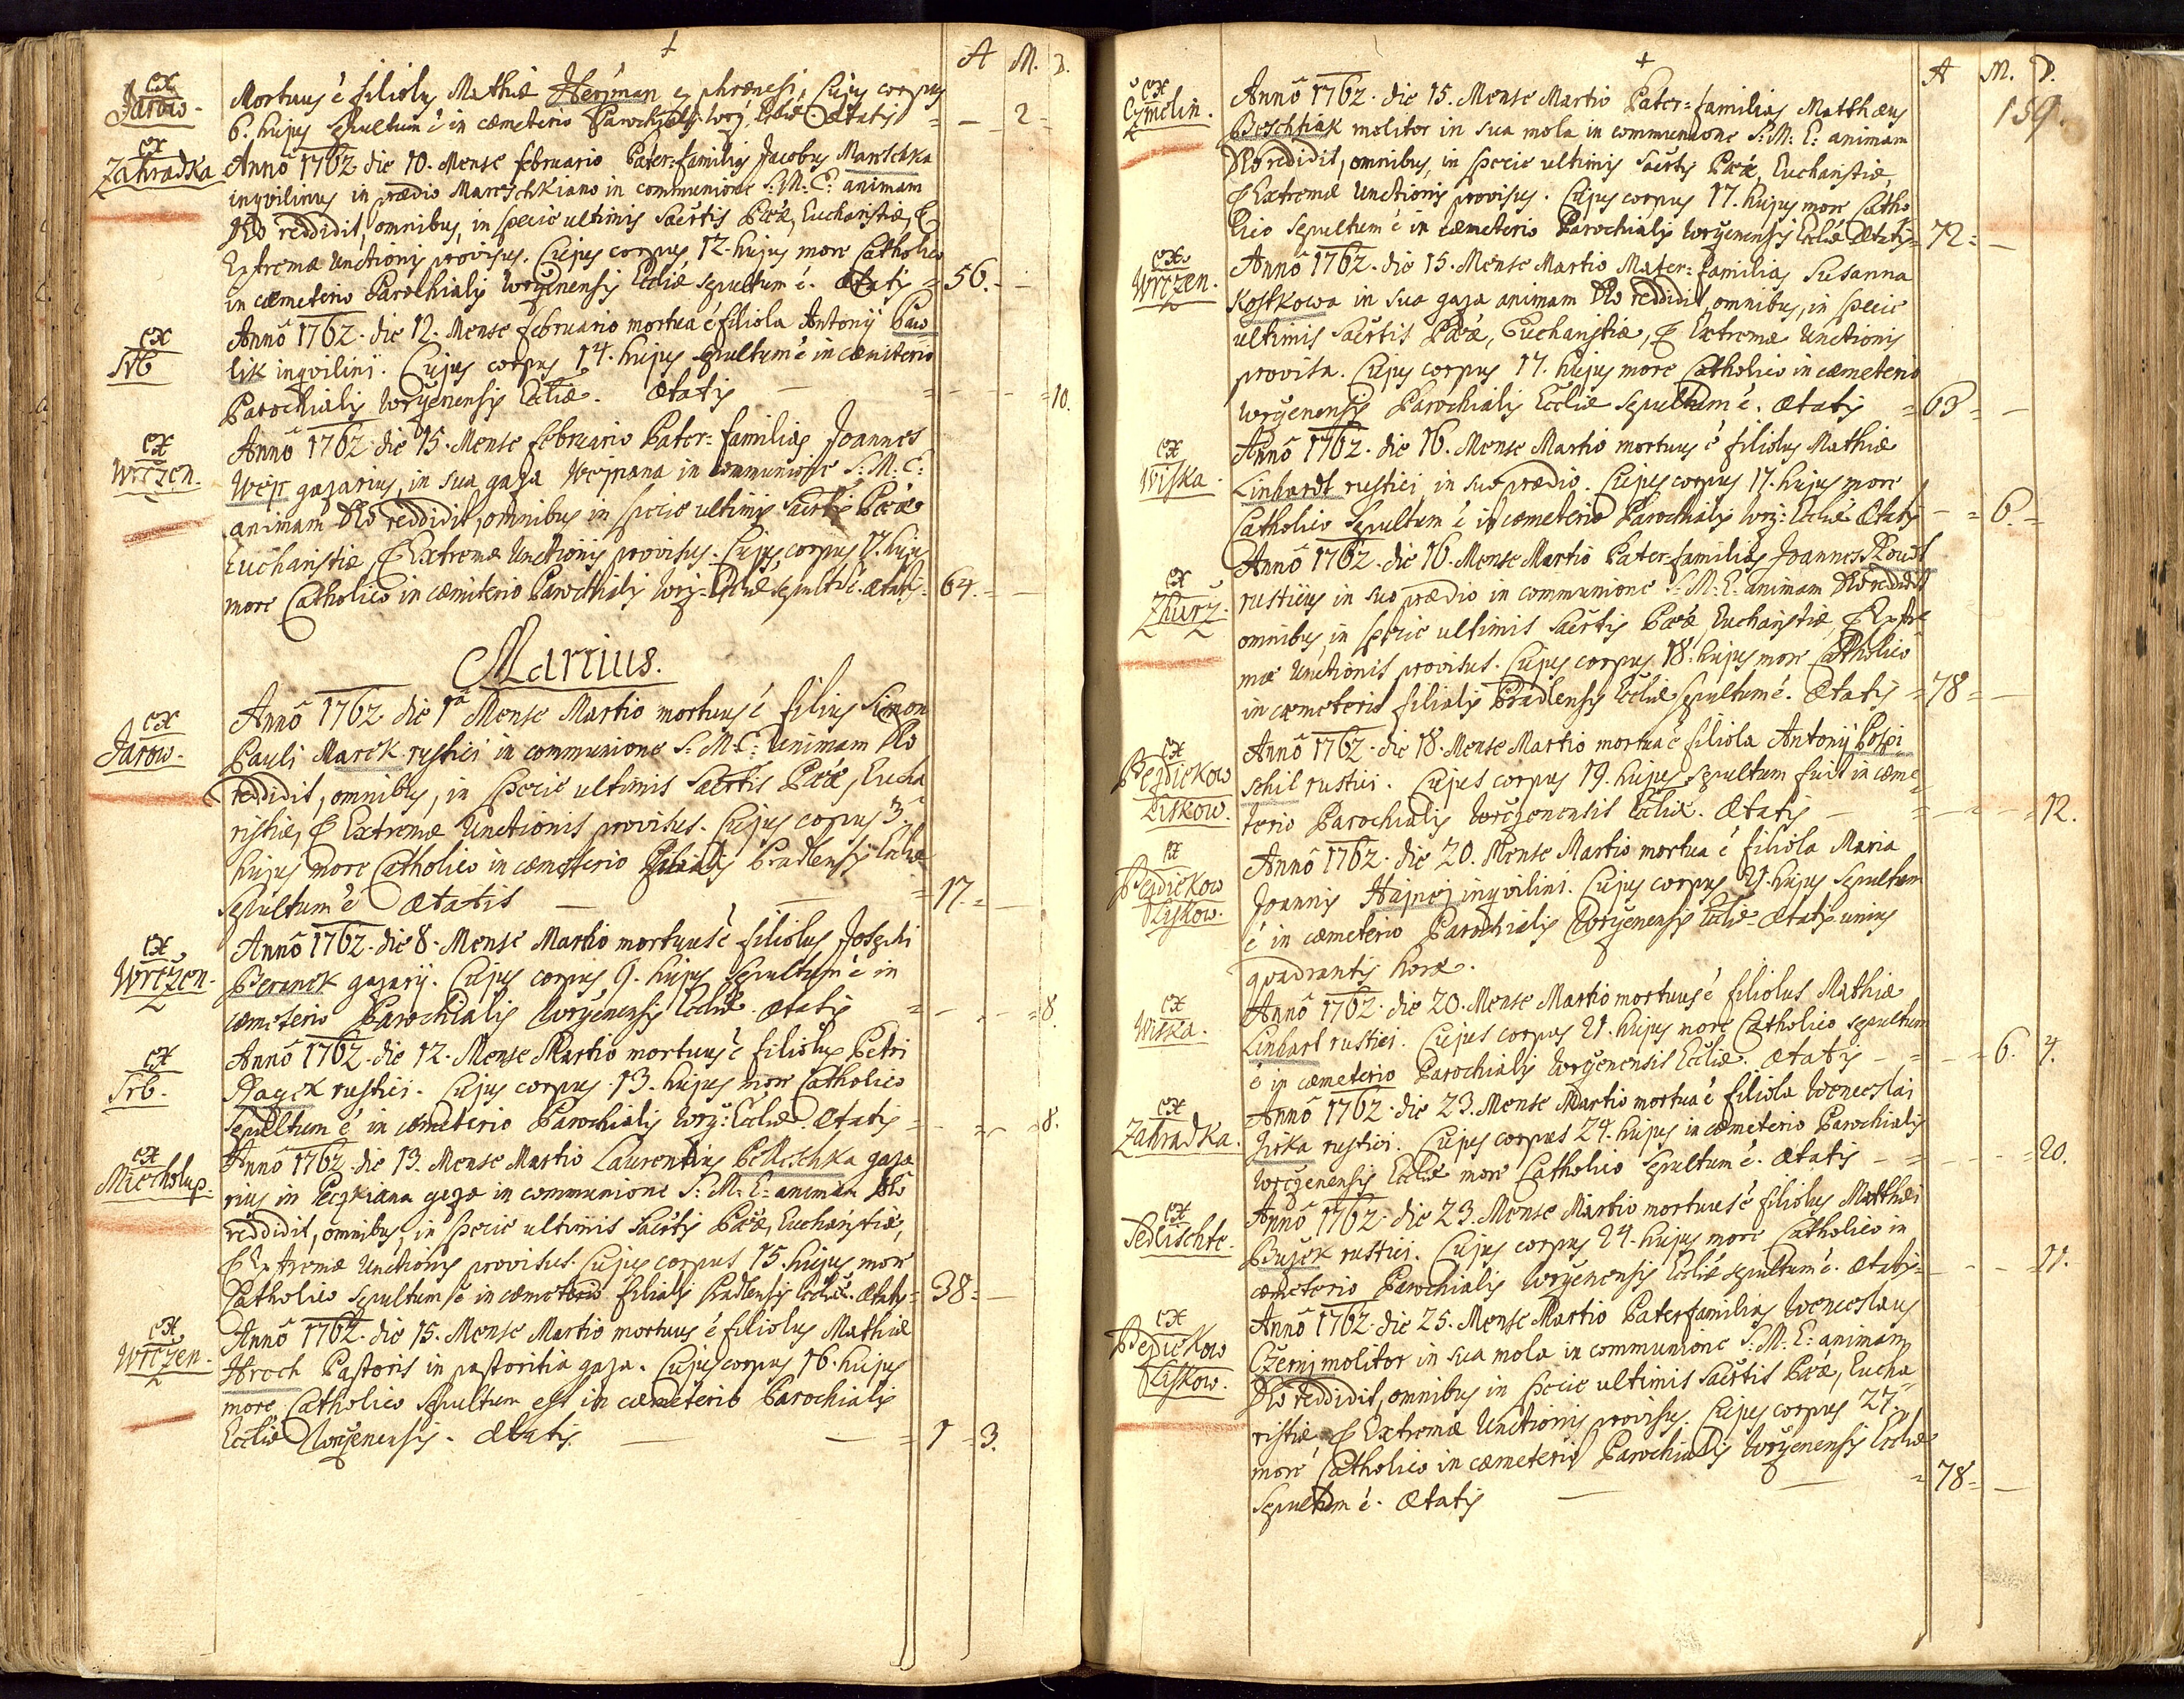 A M. D.
ex
Jarow.
Mortuus ē filiolus Mathiæ Herẏman ex phrænesi, Cujus corpus
6. hujus sepultum ē in cæmeterio Parochialis worž: Eccliæ. Ætatis = — 2 =
ex
Zahradka
Annô 1762. die 10. Mense februario Pater=familias Jacobus Mareschka
inqvilinus in prædio Mareschkiano in communione S: M: E: animam
Dēo reddidit, omnibus, in specie ultimis Sacrtis Pœæ, Eucharistiæ, &
Extremæ Unctionis provisus. Cujus corpus 12. hujus more Catholico
in cæmeterio Parochialis Wrčzenensis Eccliæ sepultum ē. Ætatis = 56. - -
ex
Srb
Annô 1762. die 12. Mense februario mortua ē filiola Antonij Paw=
lik inqvilini. Cujus corpus 14. hujus sepultum ē in cæmiterio
Parochialis Wrčzenensis Eccliæ. Ætatis — = - - = 10.
ex
Wrčzen.
Annô 1762. die 15. Mense februario Pater=familias Joannes
Wejr gazarius, in sua gaza Wejrana in communione S: M: E:
animam Dēo reddidit, omnibus in specie ultimis Sacrtis Pœæ
Eucharistiæ, & Extremæ Unctionis provisus. Cujus corpus 17. hujus
more Catholico in cæmiterio Parochialis Wrž: Eccliæ sepultū ē. Ætatis = 64. = —
Martius.
ex
Jarow.
Annô 1762 die 1ā Mense Martio mortuus ē filius Simon
Pauli Marek rustici in communione S: M: E: animam Dēo
reddidit, omnibus, in specie ultimis Sacrtis Pœæ, Eucha
ristiæ, & Extremæ Unctionis provisus. Cujus corpus 3.
hujus more Catholico in cæmeterio filialis Pradlensis Eccliæ
sepultum ē Ætatis — — = 17. = —
ex
Wrčzen.
Annô 1762. die 8. Mense Martio mortuus ē filiolus Josephi
Beranek gazarij. Cujus corpus 9. hujus sepultum ē in
cæmeterio Parochialis Wrčzenensis Eccliæ. Ætatis = - - = 8.
ex
Srb.
Annô 1762. die 12. Mense Martio mortuus ē filiolus Petri
Hagek rustici. Cujus corpus 13. hujus more Catholico
sepultum ē in cæmeterio Parochialis Wrž: Eccliæ. Ætatis = - = - 8.
ex
Miecholup.
Annô 1762. die 13. Mense Martio Laurentius Pelleschka gaza
rius in Peczkiana gaza in communione S: M: E: animam Dēo
reddidit, omnibus, in specie ultimis Sacrtis Pœæ, Eucharistiæ,
& Extremæ Unctionis provisus. Cujus corpus 15. hujus more
Catholico sepultum ē in cæmeterio filialis Pradlensis Eccliæ. Ætatis = 38 = —
ex
Wrčzen.
Annô 1762. die 15. Mense Martio mortuus ē filiolus Mathiæ
Hroch Pastoris in pastoritia gaza. Cujus corpus 16. hujus
more Catholico sepultum est in cæmeterio Parochialis
Eccliæ Wrčzenensis. Ætatis. — — = 1 = 3.
A M. D.
159.
ex
Czmelin.
Annô 1762. die 15. Mense Martio Pater=familias Matthæus
Beschtiak molitor in sua mola in communione S: M: E: animam
Dēo reddidit, omnibus, in specie ultimis Sacrtis Pœæ, Eucharistiæ,
& Extremæ Unctionis provisus. Cujus corpus 17. hujus more Catho
lico sepultum ē in cæmeterio Parochialis Wrčzenensis Eccliæ Ætatis = 72 = —
ex
Wrčzen.
Annô 1762. die 15. Mense Martio Mater=familias Susanna
Kostkowa in sua gaza animam Dēo reddidit, omnibus, in specie
ultimis Sacrtis Pœæ, Eucharistiæ, & Extremæ Unctionis
provisa. Cujus corpus 17. hujus more Catholico in cæmeterio
Wrčzenensis Parochialis Eccliæ sepultum ē. Ætatis = 63 = —
ex
Wiska.
Annô 1762. die 16. Mense Martio mortuus ē filiolus Mathiæ
Linhardt rustici in suo prædio. Cujus corpus 17. hujus more
Catholico sepultum ē in cæmeterio Parochialis Wrž: Eccliæ Ætatis - = 6. =
ex
Zhurž.
Annô 1762. die 16. Mense Martio Pater=familias Joannes Kouřt
rusticus in suo prædio in communione S: M: E: animam Dēo reddidit
omnibus, in specie ultimis Sacrtis Pœæ, Eucharistiæ, & Extre
mæ Unctionis provisus. Cujus corpus 18. hujus more Catholico
in cæmeterio filialis Pradlensis Eccliæ sepultum ē. Ætatis = 78 = —
ex
Bezdiekow
Liskow.
Annô 1762. die 18. Mense Martio mortua ē filiola Antonij Pospi
schil rustici. Cujus corpus 19. hujus sepultum fuit in cæme
terio Parochialis Wrčzenensis Eccliæ. Ætatis — = — - = 12.
ex
Bezdiekow
Liskow.
Annô 1762. die 20. Mense Martio mortua ē filiola Maria
Joannis Hajnej inqvilini. Cujus corpus 21. hujus sepultum
ē in cæmeterio Parochialis Wrčzenensis Eccliæ. Ætatis unius
quadrantis horæ.
ex
Wiska.
Annô 1762. die 20. Mense Martio mortuus ē filiolus Mathiæ
Linhart rustici. Cujus corpus 21. hujus more Catholico sepultum
ē in cæmeterio Parochialis Wrčzenensis Eccliæ. Ætatis - = - = 6. 4.
ex
Zahradka.
Annô 1762. die 23. Mense Martio mortua ē filiola Wenceslai
Jirka rustici. Cujus corpus 24. hujus in cæmeterio Parochialis
Wrčzenensis Eccliæ more Catholico sepultum ē. Ætatis - = - - = 20.
ex
Sedlischte.
Annô 1762. die 23. Mense Martio mortuus ē filiolus Matthæi
Buzek rustici. Cujus corpus 24. hujus more Catholico in
cæmeterio Parochialis Wrčzenensis Eccliæ sepultum ē. Ætatis = - - - 21.
ex
Bezdiekow
Liskow.
Annô 1762. die 25. Mense Martio Paterfamilias Wenceslaus
Czernj molitor in sua mola in communione S: M: E: animam
Dēo reddidit, omnibus in specie ultimis Sacrtis Pœæ, Eucha
ristiæ & Extremæ Unctionis provisus. Cujus corpus 27.
more Catholico in cæmeterio Parochialis Wrčzenensis Eccliæ
sepultum ē. Ætatis — — = 78 = —